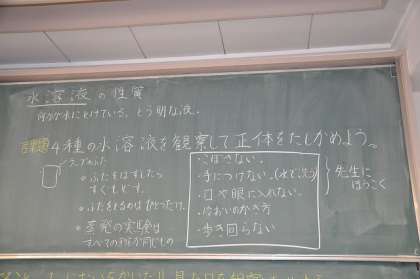 水溶液の性質
何かが水にとけている、とう明な液。
課題 4種の水溶液を観察して正体をたしかめよう。
ガラスのふた
・ふたをはずしたら
すぐもどす。
・ふたをとるのはひとつだけ。
・蒸発の実験は
すべての
・こぼさない。
・手につけない。(水で洗う)
・口や眼に入れない。
・においのかぎ方
・歩き回らない
先生に
ほうこく